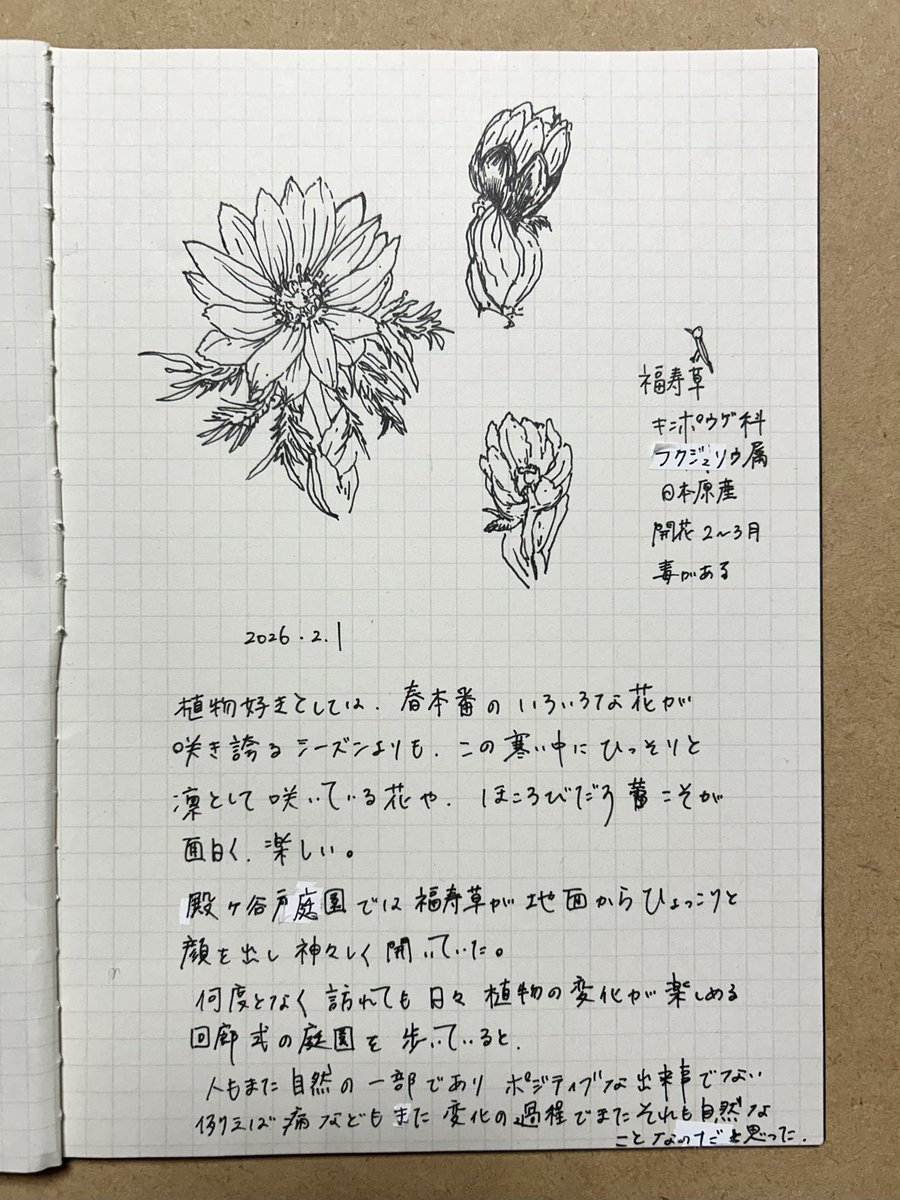 福寿草
キンポウゲ科
フクジュソウ属
日本原産
開花 2～3月
毒がある
2026.2.1
植物好きとしては、春本番のいろいろな花が
咲き誇るシーズンよりも、この寒い中にひっそりと
凛として咲いている花や、ほころびだす蕾こそが
面白く、楽しい。
殿ヶ谷戸庭園では福寿草が地面からひょっこりと
顔を出し神々しく開いていた。
何度となく訪れても日々植物の変化が楽しめる
回廊式の庭園を歩いていると、
人もまた自然の一部でありポジティブな出来事でない
例えば病などもまた変化の過程でまたそれも自然な
ことなのだと思った。